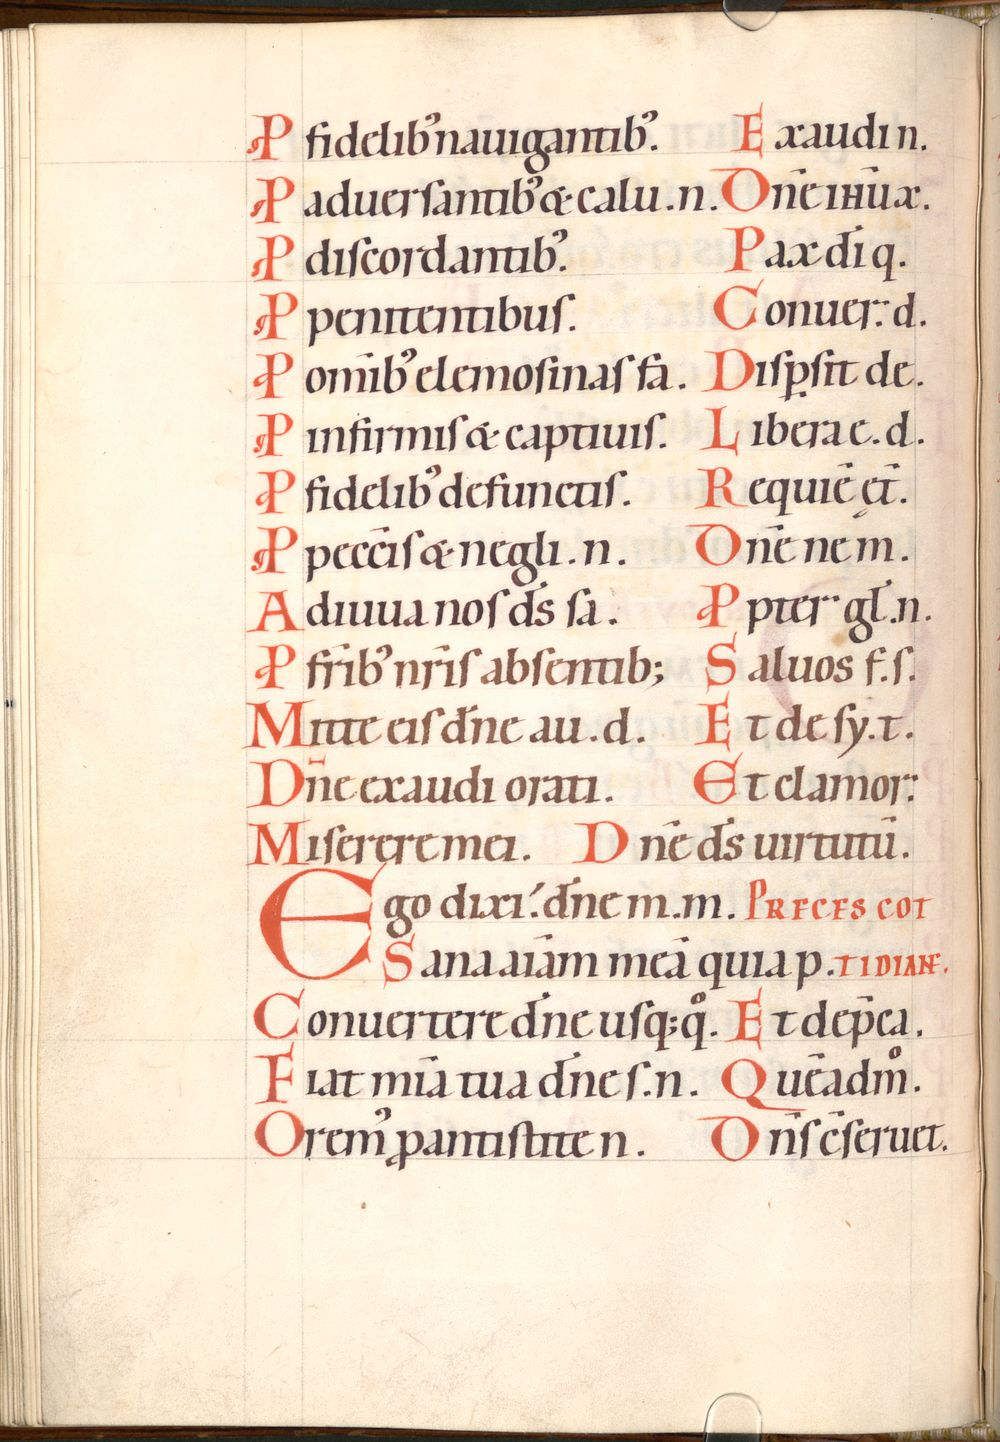 P fidelibꝰ nauigantibꝰ. Exaudi n.
P aduersantibꝰ & calu. n. Dn̄e ihū x.
P discordantibꝰ. Pax dī q.
P penitentibus. Conuer: d.
P om̄ibꝰ elemosinas fā. Disp̱sit de.
P infirmis & captiuis. Libera e. d.
P fidelibꝰ defunctis. Requiē ęt̄.
P pecc̄is & negli. n. Dn̄e ne m.
Adiuua nos d̄s sa. Ppter gl̄. n.
P fr̄ibꝰ nr̄is absentib; Saluos f. s.
Mitte eis dn̄e au. d. Et de sy. t.
Dn̄e exaudi orati. Et clamor:
Miserere mei. Dn̄e d̄s uirtutū.
Ego dixi: dn̄e m. m. PRECES COT
Sana aīam meā quia p. TIDIANE.
Conuertere dn̄e usq; q̊. Et dep̄ca.
Fiat mīa tua dn̄e s. n. Quēadm̊.
Oremꝰ ꝓ antistite n. Dn̄s c̄seruet.